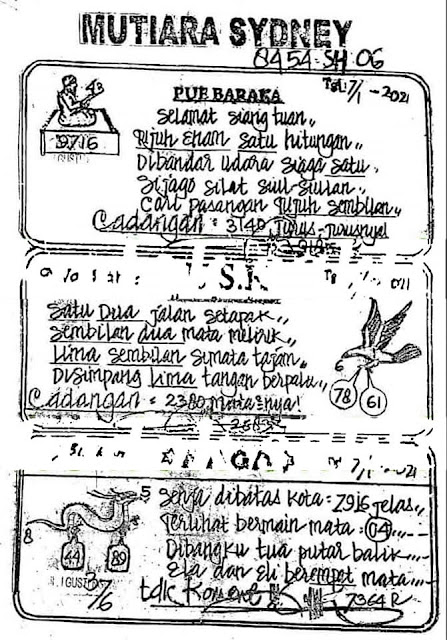 MUTIARA SYDNEY
8454-SH 06
Tgl: 7/1-2021
PUE BARAKA
9716
Selamat siang tuan,,
Tujuh enam satu hitungan,,
Dibandar udara siaga satu.
Si jago silat siul-siulan.
Cari pasangan tujuh sembilan,,
Cadangan: 3140, Jurus-jurusnya!
U.S.K
021
Satu Dua jalan setapak,,
Sembilan dua mata melirik,,
Lima sembilan simata tajam,,
Disimpang lima tangan berpalu,,
Cadangan = 2380 mata=nya!
78
61
7/1-2021
5 Senja dibatas kota: 7916 jelas,,
Terlihat bermain mata: 04
Dibangku tua putar balik
Ela dan Eli berempat mata
8
44
89
7/6
7364 R